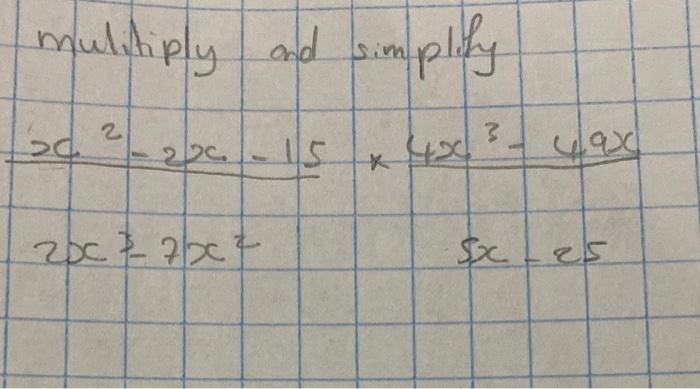 mulitiply and simplify
x² - 2x - 15 × 4x³ - 49x
2x³ - 7x² 5x - 25